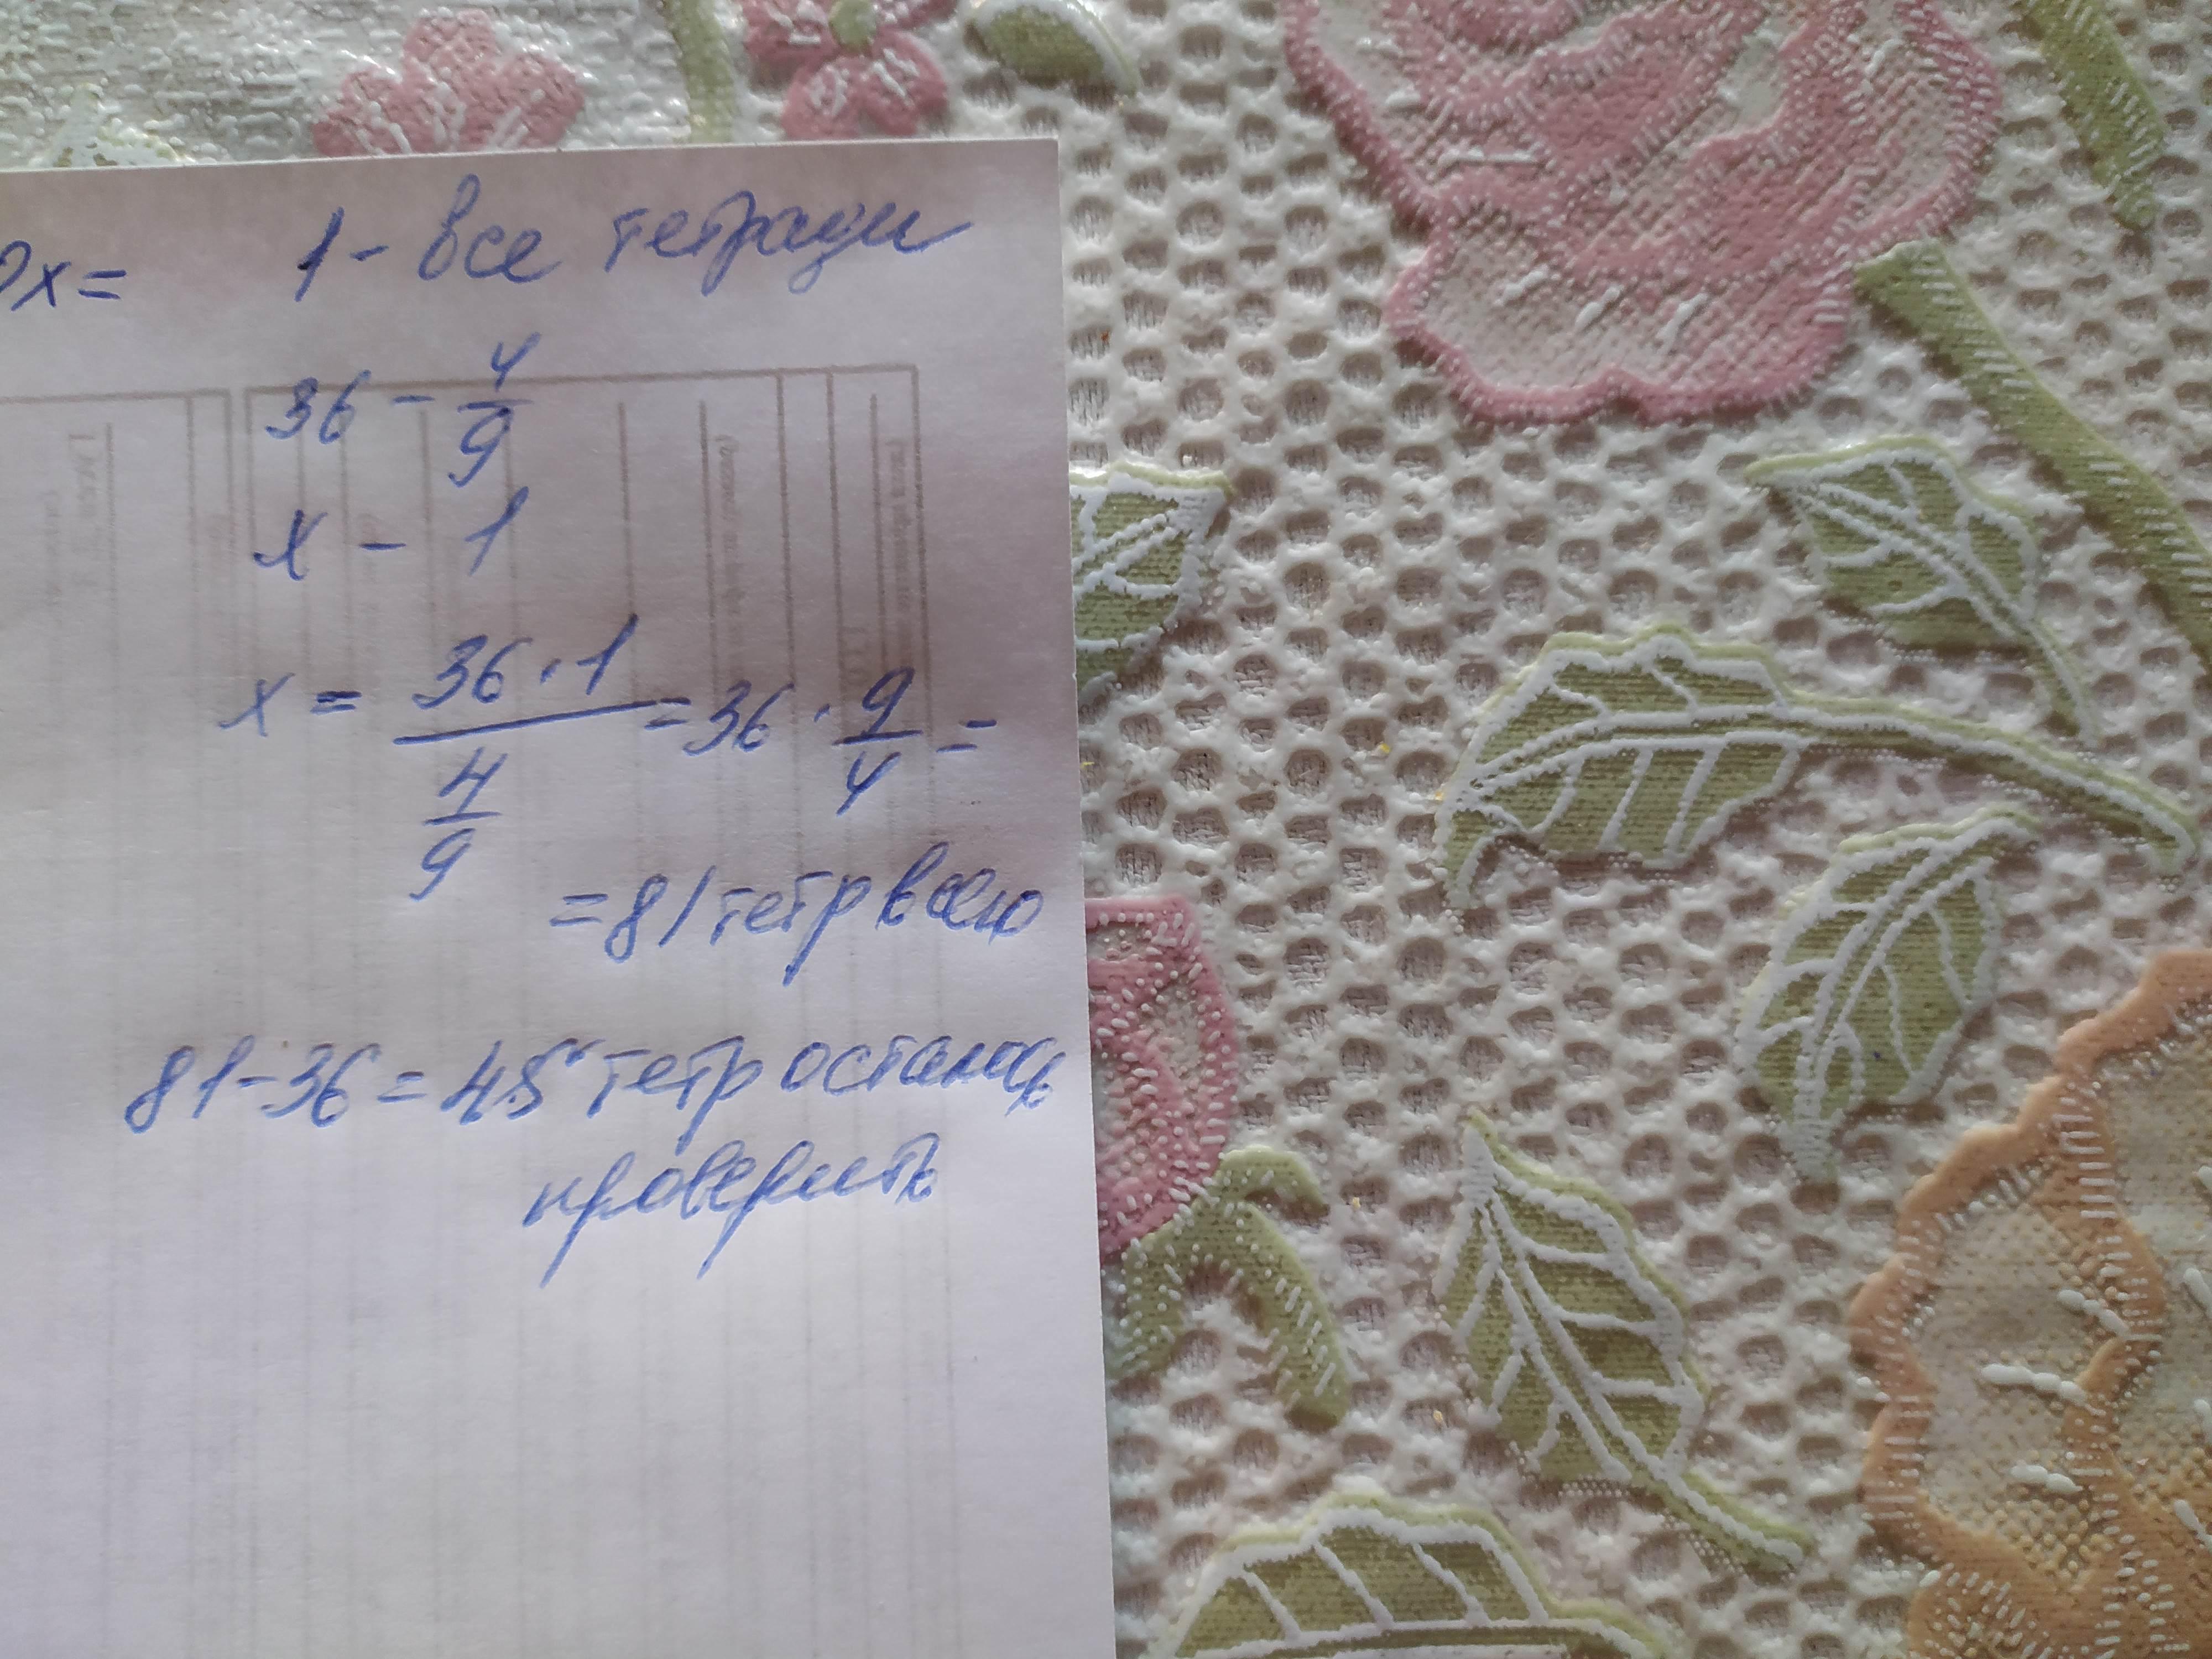 x= 1 - все тетради
36 - 4/9
x - 1
x = (36 · 1)/(4/9) = 36 · 9/4 =
= 81 тетр всего
81 - 36 = 45 тетр осталось
проверить